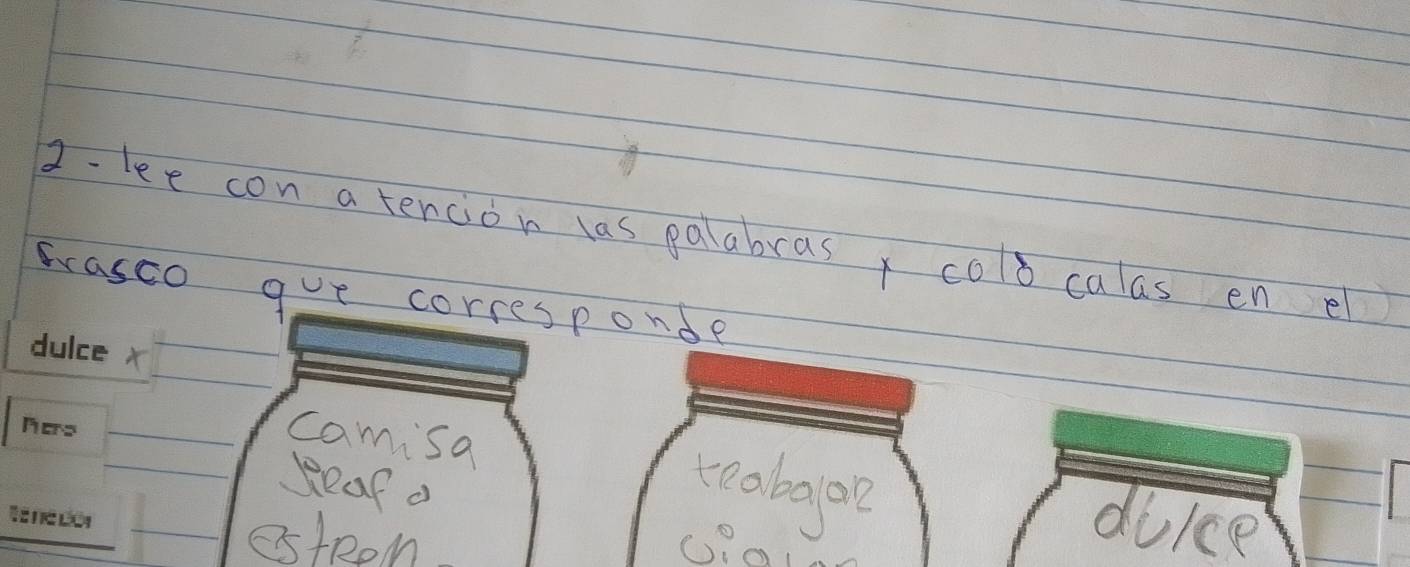 2- lee con atención las palabras y colócalas en el
frasco que corresponde
dulce x
camisa
jirafa
trabajar
dulce